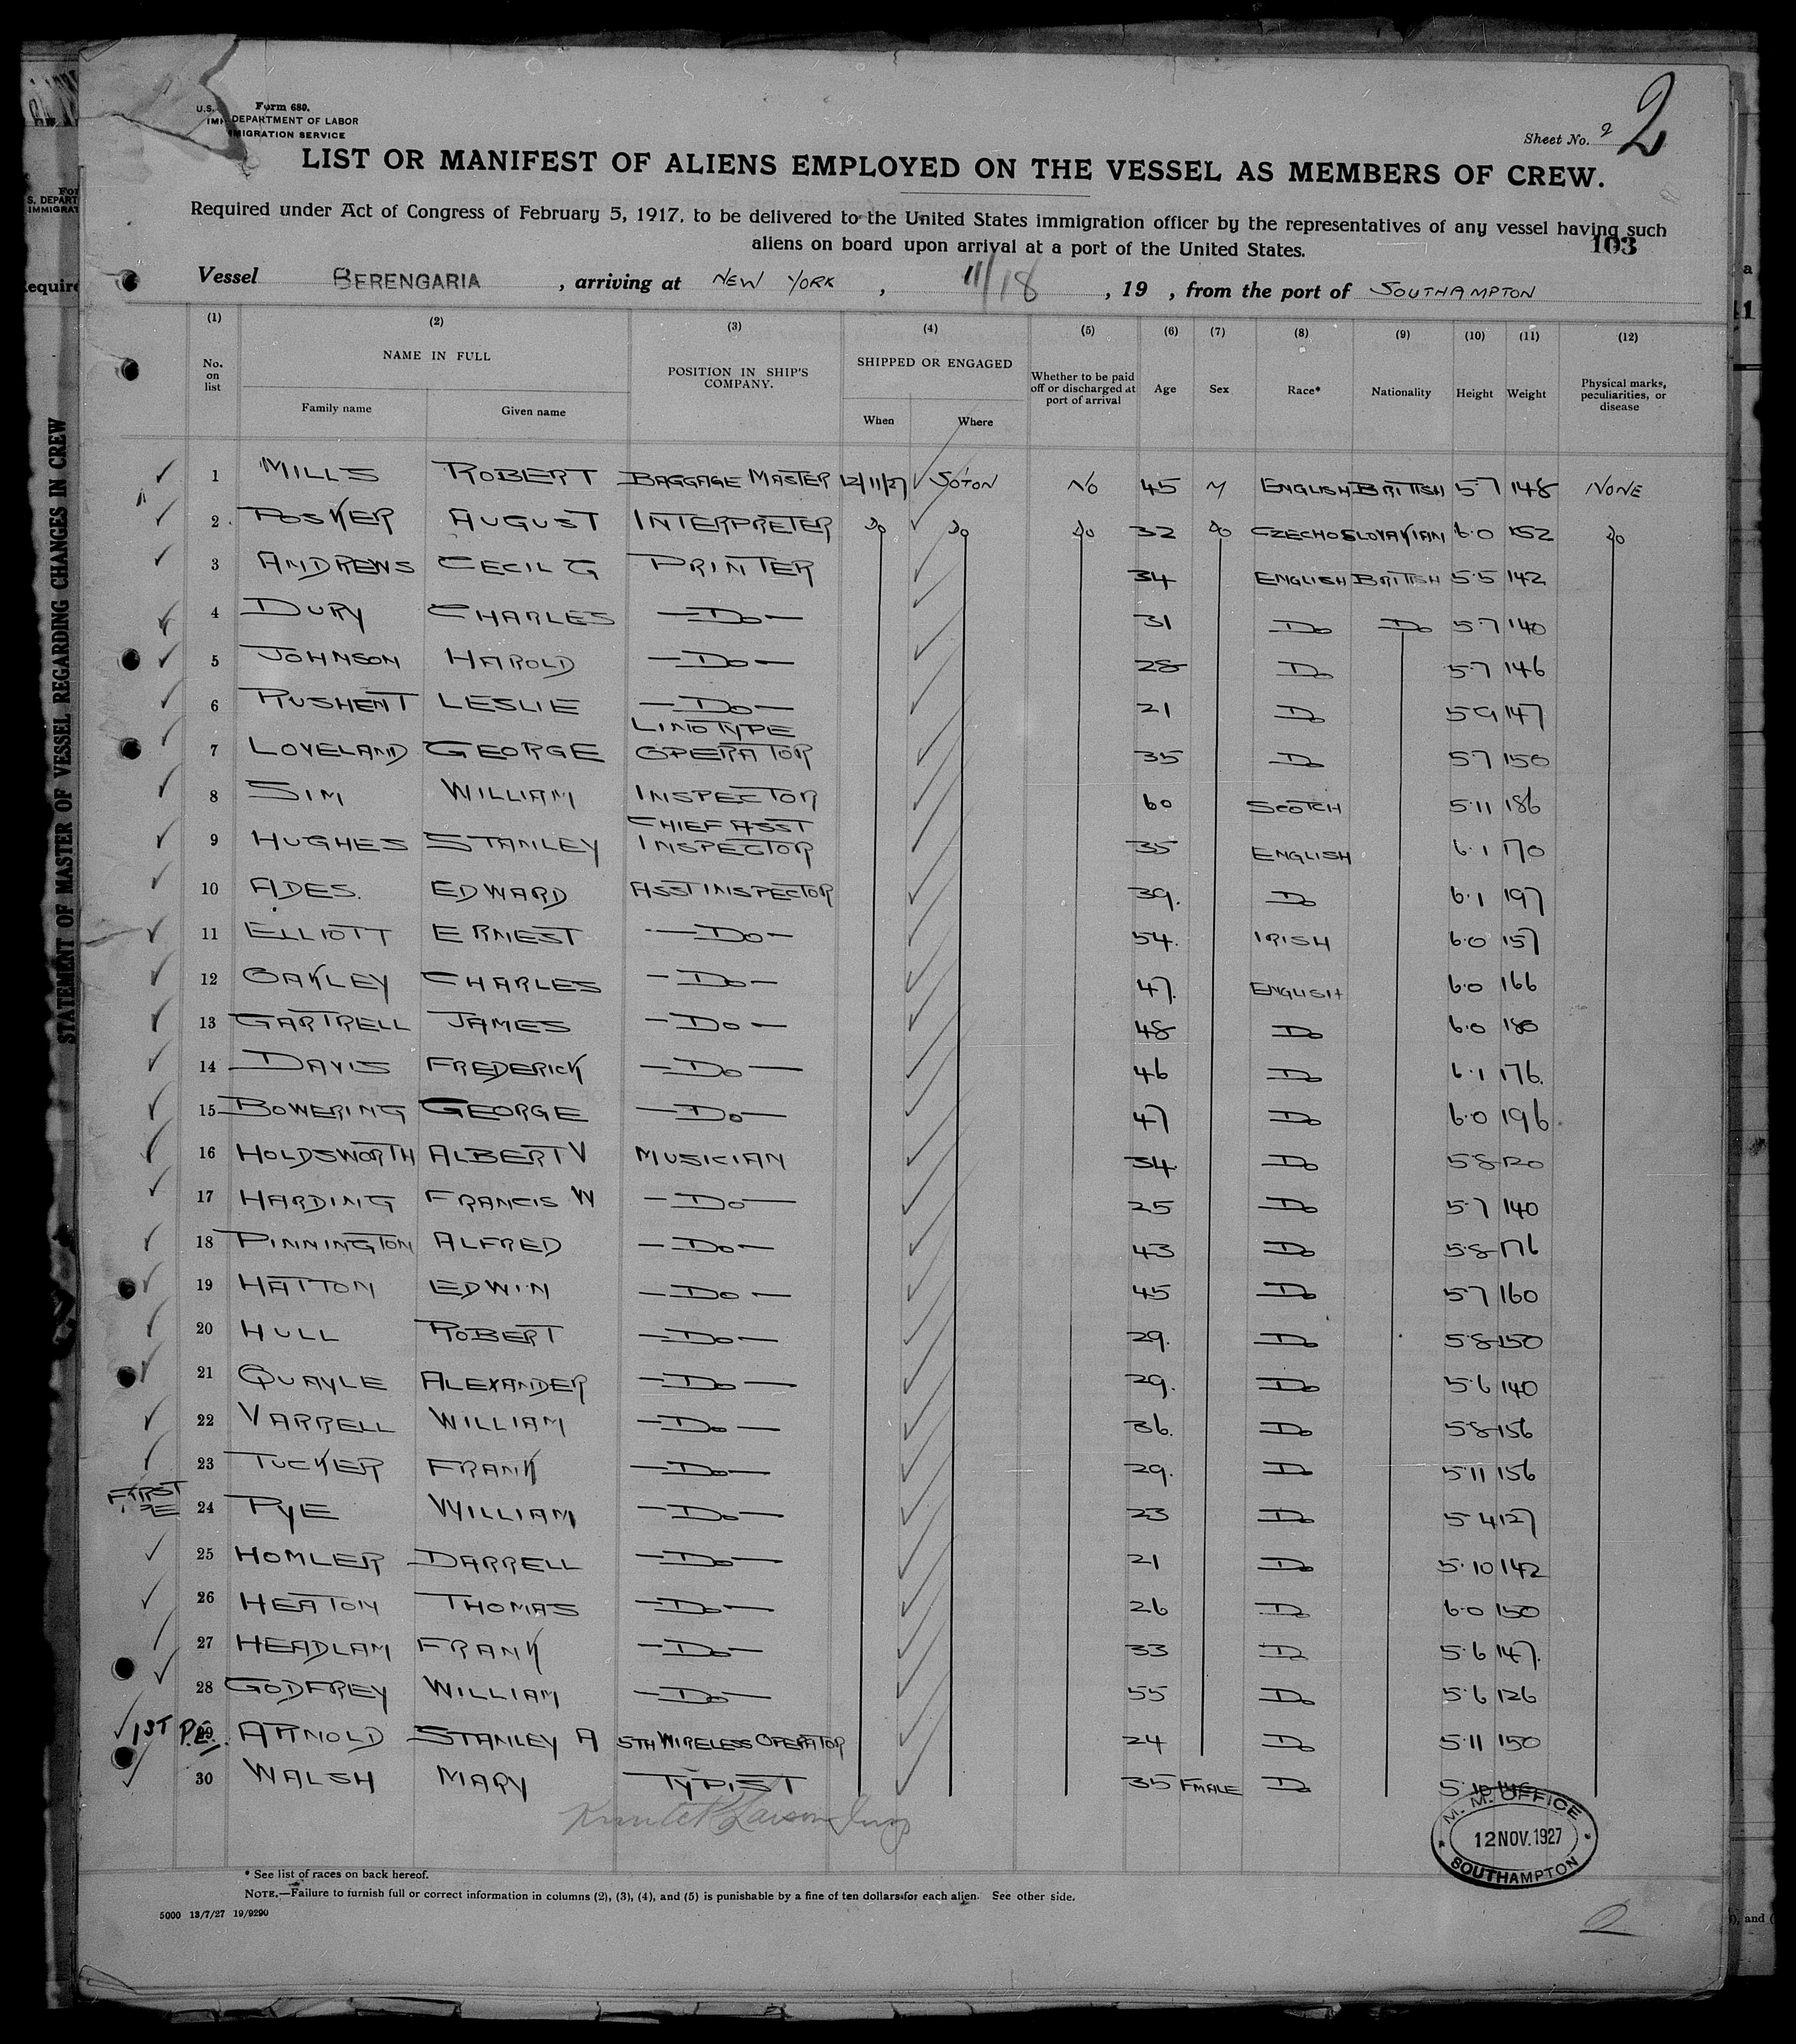 Form 680.
U.S. DEPARTMENT OF LABOR
IMMIGRATION SERVICE
Sheet No. 2 2
LIST OR MANIFEST OF ALIENS EMPLOYED ON THE VESSEL AS MEMBERS OF CREW.
Required under Act of Congress of February 5, 1917, to be delivered to the United States immigration officer by the representatives of any vessel having such
aliens on board upon arrival at a port of the United States.
103
Vessel BERENGARIA, arriving at NEW YORK, 11/18, 19 , from the port of SOUTHAMPTON
(1) (2) (3) (4) (5) (6) (7) (8) (9) (10) (11) (12)
No. on list NAME IN FULL Family name Given name POSITION IN SHIP'S COMPANY. SHIPPED OR ENGAGED When Where Whether to be paid off or discharged at port of arrival Age Sex Race* Nationality Height Weight Physical marks, peculiarities, or disease
1 MILLS ROBERT BAGGAGE MASTER 12/11/27 SOTON NO 45 M ENGLISH BRITISH 5.7 148 NONE
2 POSKER AUGUST INTERPRETER Do Do Do 32 Do CZECHOSLOVAKIAN 6.0 152 Do
3 ANDREWS CECIL G PRINTER 34 ENGLISH BRITISH 5.5 142
4 DURY CHARLES —Do— 31 Do Do 5.7 140
5 JOHNSON HAROLD —Do— 28 Do 5.7 146
6 RUSHENT LESLIE —Do— 21 Do 5.9 147
7 LOVELAND GEORGE LINOTYPE OPERATOR 35 Do 5.7 150
8 SIM WILLIAM INSPECTOR 60 SCOTCH 5.11 186
9 HUGHES STANLEY CHIEF ASST INSPECTOR 35 ENGLISH 6.1 170
10 ADES. EDWARD ASST INSPECTOR 39. Do 6.1 197
11 ELLIOTT ERNEST —Do— 54. IRISH 6.0 157
12 OAKLEY CHARLES —Do— 47. ENGLISH 6.0 166
13 GARTRELL JAMES —Do— 48 Do 6.0 180
14 DAVIS FREDERICK —Do— 46 Do 6.1 176.
15 BOWERING GEORGE —Do— 47 Do 6.0 196.
16 HOLDSWORTH ALBERT V MUSICIAN 34 Do 5.8 120
17 HARDING FRANCIS W —Do— 25 Do 5.7 140
18 PINNINGTON ALFRED —Do— 43 Do 5.8 176
19 HATTON EDWIN —Do— 45 Do 5.7 160
20 HULL ROBERT —Do— 29. Do 5.8 150
21 QUAYLE ALEXANDER —Do— 29. Do 5.6 140
22 VARRELL WILLIAM —Do— 36. Do 5.8 156
23 TUCKER FRANK —Do— 29. Do 5.11 156
FIRST 24 PYE WILLIAM —Do— 23 Do 5.4 127
25 HOMLER DARRELL —Do— 21 Do 5.10 142
26 HEATON THOMAS —Do— 26 Do 6.0 150
27 HEADLAM FRANK —Do— 33 Do 5.6 147.
28 GODFREY WILLIAM —Do— 55 Do 5.6 126
1ST P.E. 29 ARNOLD STANLEY A 5TH WIRELESS OPERATOR 24 Do 5.11 150
30 WALSH MARY TYPIST 35 FMALE Do
M. M. OFFICE
12 NOV. 1927
SOUTHAMPTON
* See list of races on back hereof.
NOTE.—Failure to furnish full or correct information in columns (2), (3), (4), and (5) is punishable by a fine of ten dollars for each alien. See other side.
5000 13/7/27 19/9290
STATEMENT OF MASTER OF VESSEL REGARDING CHANGES IN CREW